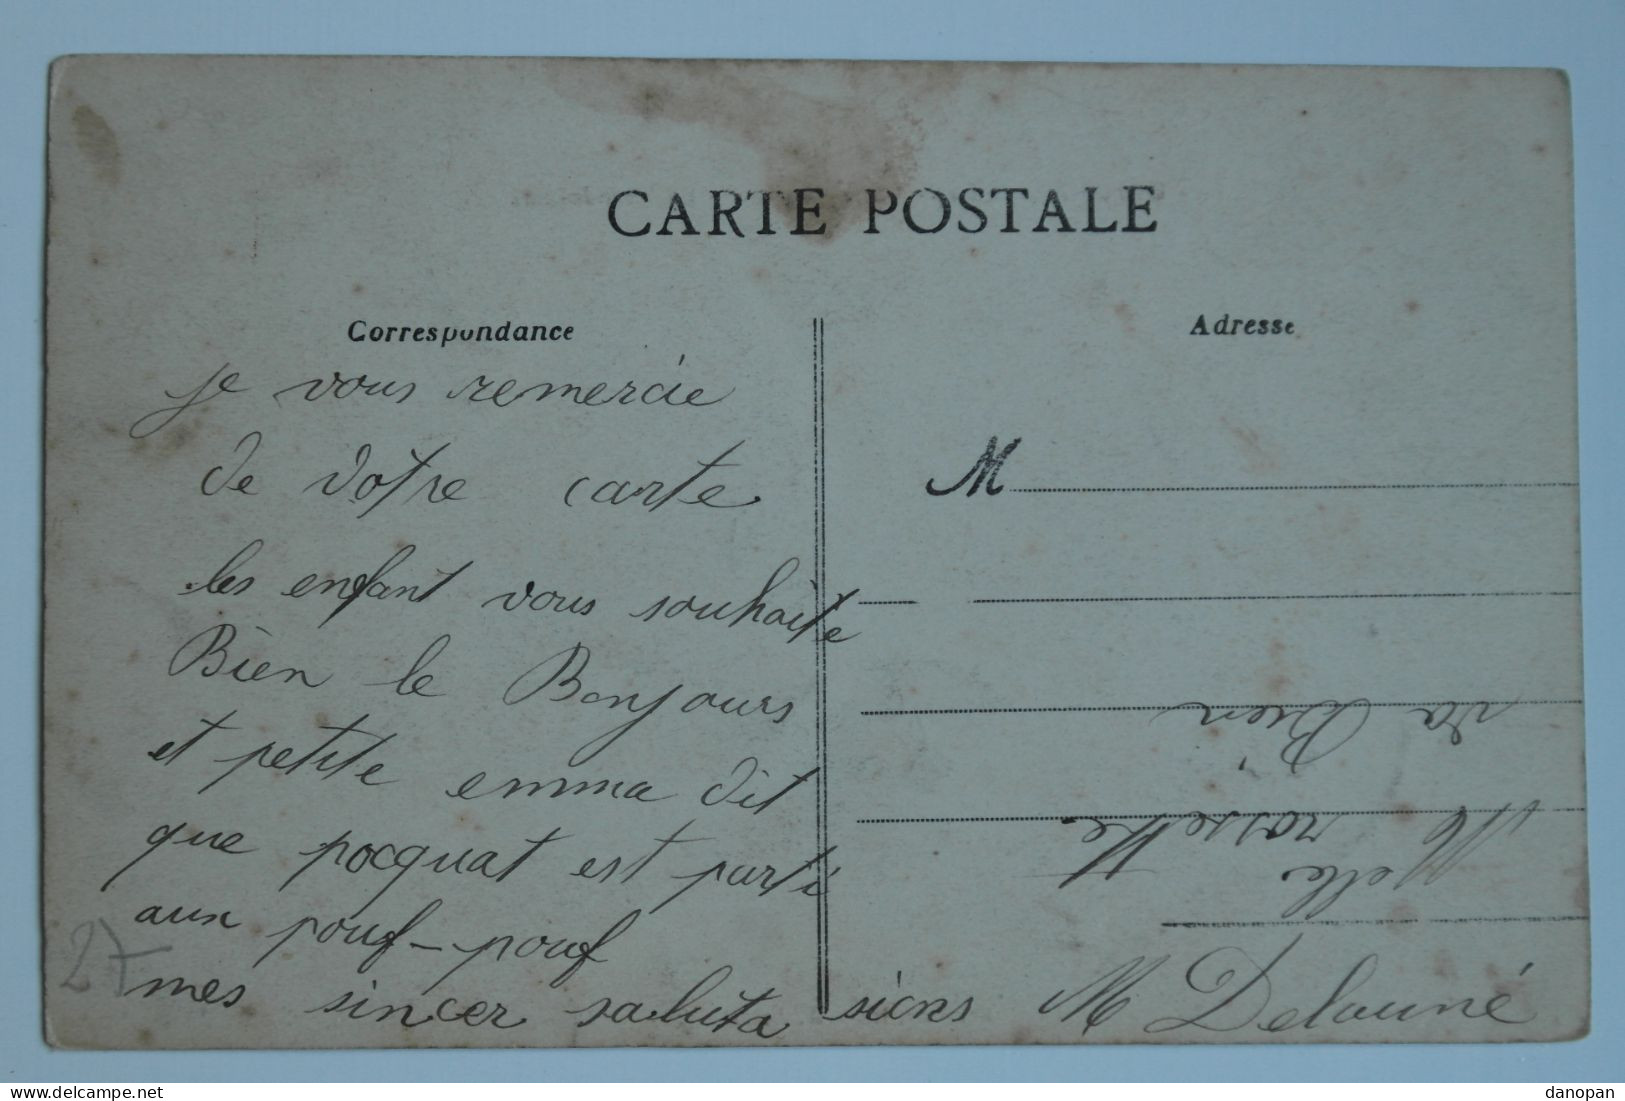 CARTE POSTALE
Correspondance
Adresse
je vous remercie
de votre carte
les enfant vous souhaite
Bien le Bonjours
et petite emma dit
que pocquat est parti
aux pouf-pouf
mes sincer saluta siens M Delauné
M
Melle rossette
va Bien
27
delcampe.net
danopan